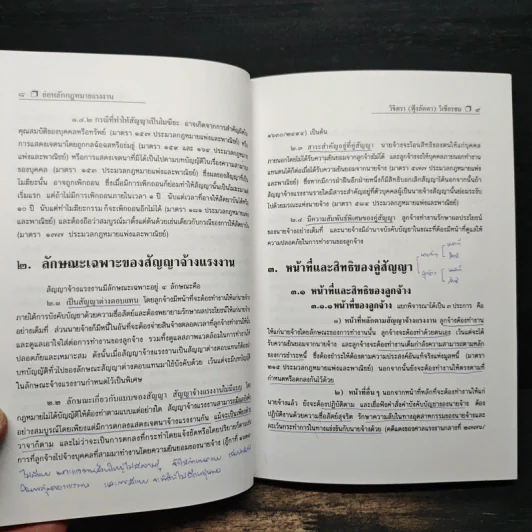 ๘ ❒ ย่อหลักกฎหมายแรงงาน
๑.๗.๒ กรณีที่ทำให้สัญญาเป็นโมฆียะ อาจเกิดจากการสำคัญผิดใน
คุณสมบัติของบุคคลหรือทรัพย์ (มาตรา ๑๕๗ ประมวลกฎหมายแพ่งและพาณิชย์) หรือ
การแสดงเจตนาโดยถูกกลฉ้อฉลหรือข่มขู่ (มาตรา ๑๕๙ และ ๑๖๔ ประมวลกฎหมาย
แพ่งและพาณิชย์) หรือการแสดงเจตนาที่มิได้เป็นไปตามบทบัญญัติในเรื่องความสามารถ
ของบุคคล (มาตรา ๑๕๓ ประมวลกฎหมายแพ่งและพาณิชย์) ซึ่งผลของสัญญาที่เป็น
โมฆียะนั้น อาจถูกเพิกถอน ซึ่งเมื่อมีการเพิกถอนก็ย่อมทำให้สัญญานั้นเป็นโมฆะมาแต่
เริ่มแรก แต่ถ้าไม่มีการเพิกถอนภายในเวลา ๑ ปี นับแต่เวลาที่อาจให้สัตยาบันได้หรือ
๑๐ ปี นับแต่ทำโมฆียะกรรม ก็จะเพิกถอนอีกไม่ได้ (มาตรา ๑๘๑ ประมวลกฎหมายแพ่ง
และพาณิชย์) และต้องถือว่าสมบูรณ์มาตั้งแต่ต้นด้วยเช่นเดียวกับกรณีของการให้สัตยาบัน
(มาตรา ๑๗๗ ประมวลกฎหมายแพ่งและพาณิชย์)
๒. ลักษณะเฉพาะของสัญญาจ้างแรงงาน
สัญญาจ้างแรงงานมีลักษณะเฉพาะอยู่ ๔ ลักษณะคือ
๒.๑ เป็นสัญญาต่างตอบแทน โดยลูกจ้างมีหน้าที่จะต้องทำงานให้แก่นายจ้าง
ภายใต้การบังคับบัญชาด้วยความซื่อสัตย์และต้องพยายามรักษาผลประโยชน์ของนายจ้าง
อย่างเต็มที่ ส่วนนายจ้างก็มีหนี้ในอันที่จะต้องจ่ายสินจ้างตลอดเวลาที่ลูกจ้างทำงานให้
และดูแลเอาใจใส่ต่อการทำงานของลูกจ้าง รวมทั้งดูแลสภาพแวดล้อมในการทำงานให้
ปลอดภัยและเหมาะสม ดังนั้นเมื่อสัญญาจ้างแรงงานเป็นสัญญาต่างตอบแทนก็ต้องนำ
บทบัญญัติทั่วไปของลักษณะสัญญาต่างตอบแทนมาใช้บังคับด้วย เว้นแต่จะมีบทบัญญัติ
ในลักษณะจ้างแรงงานกำหนดไว้เป็นพิเศษ
๒.๒ ลักษณะเกี่ยวกับแบบของสัญญา สัญญาจ้างแรงงานไม่มีแบบ โดย
กฎหมายไม่ได้บัญญัติให้ต้องทำตามแบบแต่อย่างใด สัญญาจ้างแรงงานสามารถเกิดขึ้น
อย่างสมบูรณ์โดยเพียงแต่มีการตกลงแสดงเจตนาจ้างแรงงานกัน แม้จะเป็นเพียงด้วย
วาจาก็ตาม และไม่ว่าจะเป็นการตกลงที่กระทำโดยแจ้งชัดหรือโดยปริยายก็ตาม
การที่ลูกจ้างไปจ้างบุคคลที่สามมาทำงานโดยความยินยอมของนายจ้าง (ฎีกาที่
วิจิตรา (ฟุ้งลัดดา) วิเชียรชม ❒ ๙
๑๒๓๐/๒๔๙๔) เป็นต้น
๒.๓ สาระสำคัญอยู่ที่คู่สัญญา นายจ้างจะโอนสิทธิของตนให้แก่บุคคล
ภายนอกโดยไม่ได้รับความยินยอมจากลูกจ้างไม่ได้ และลูกจ้างจะให้บุคคลภายนอกทำงาน
แทนตนได้ก็ต่อเมื่อได้รับความยินยอมจากนายจ้าง (มาตรา ๕๗๗ ประมวลกฎหมายแพ่ง
และพาณิชย์) หากมีการฝ่าฝืนอีกฝ่ายหนึ่งก็มีสิทธิบอกเลิกสัญญาได้นอกจากนั้นถ้า
สัญญาจ้างแรงงานรายใดมีสาระสำคัญอยู่ที่ตัวบุคคลผู้เป็นนายจ้างสัญญานั้นย่อมระงับ
ไปด้วยมรณะแห่งนายจ้าง (มาตรา ๕๘๔ ประมวลกฎหมายแพ่งและพาณิชย์)
๒.๔ มีความสัมพันธ์พิเศษของคู่สัญญา ลูกจ้างทำการรักษาผลประโยชน์
ของนายจ้างอย่างเต็มที่ และนายจ้างมีอำนาจบังคับบัญชาในขณะที่ต้องมีหน้าที่ดูแลให้
ความปลอดภัยในการทำงานของลูกจ้าง
๓. หน้าที่และสิทธิของคู่สัญญา
๓.๑ หน้าที่และสิทธิของลูกจ้าง
๓.๑.๑ หน้าที่ของลูกจ้าง แยกพิจารณาได้เป็น ๓ ประการ คือ
๑) หน้าที่หลักตามสัญญาจ้างแรงงาน ลูกจ้างต้องทำงาน
ให้แก่นายจ้างโดยลักษณะของการทำงานนั้น ลูกจ้างจะต้องทำด้วยตนเอง เว้นแต่จะได้
รับความยินยอมจากนายจ้าง และลูกจ้างจะต้องทำงานเต็มกำลังความสามารถตามหลัก
ของการชำระหนี้ ซึ่งต้องชำระให้ต้องตามความประสงค์อันแท้จริงแห่งมูลหนี้ (มาตรา
๒๑๕ ประมวลกฎหมายแพ่งและพาณิชย์) นอกจากนั้นยังจะต้องทำงานให้ตรงตามที่
กำหนดหรือตกลงกันไว้ด้วย
๒) หน้าที่อื่นๆ นอกจากหน้าที่หลักที่จะต้องทำงานให้แก่
นายจ้างแล้ว ยังจะต้องปฏิบัติตาม และเชื่อฟังคำสั่งบังคับบัญชาของนายจ้าง ต้อง
ปฏิบัติงานด้วยความซื่อสัตย์สุจริต รักษาความลับในทางอุตสาหกรรมของนายจ้างและ
ละเว้นกระทำการในทางแข่งขันกับนายจ้างด้วย